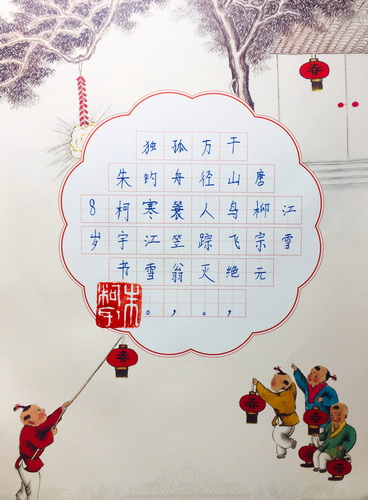 江雪
唐柳宗元
千山鸟飞绝，
万径人踪灭。
孤舟蓑笠翁，
独钓寒江雪。
朱柯宇书
8岁
朱柯宇
春
春
春